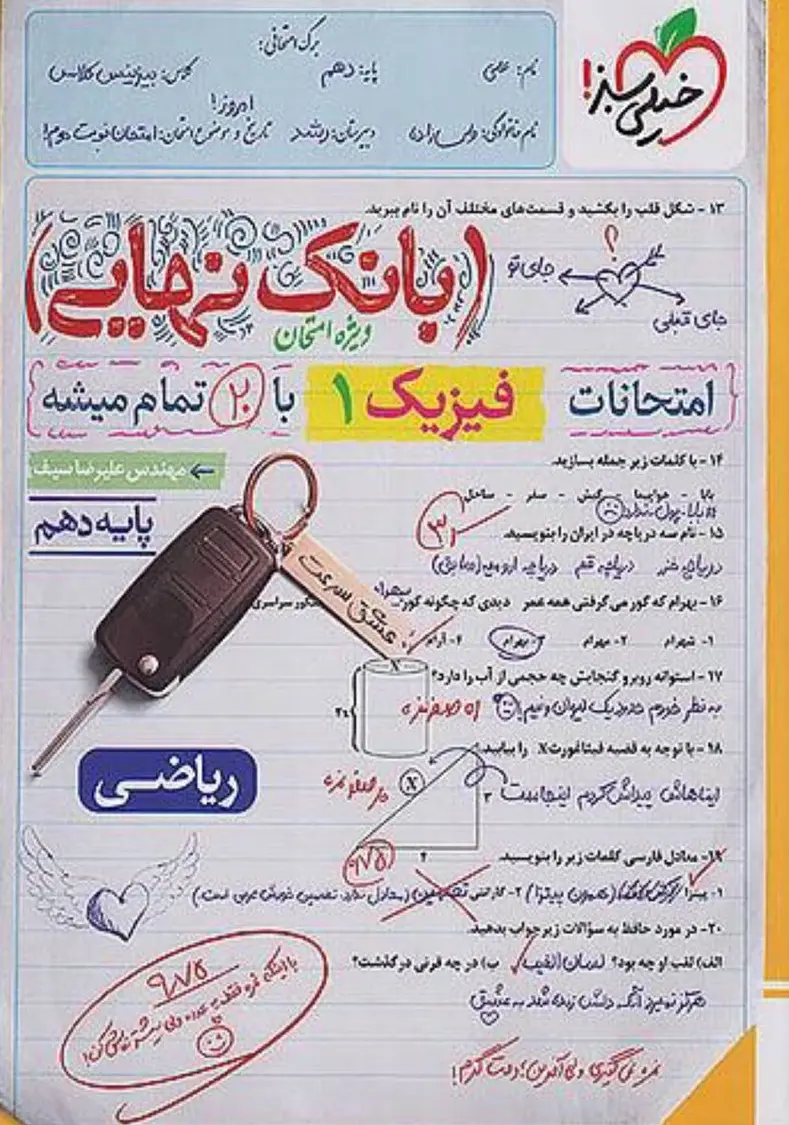 خیلی سبز!
برگ امتحانی:
نام: علمی
پایه: دهم
کلاس: بیزینس کلاس
نام خانوادگی:
دبیرستان: رشد
تاریخ و موضوع امتحان: امتحان نوبت دوم!
امروز!
۱۳- شکل قلب را بکشید و قسمت‌های مختلف آن را نام ببرید.
؟
جای تو
جای قبلی
(بانک نهایی)
ویژه امتحان
امتحانات فیزیک ۱ با ۲۰ تمام میشه
۱۴- با کلمات زیر جمله بسازید.
مهندس علیرضا سیف
بابا - هواپیما - کیش - سفر - ساحل
بابا پول ندارد
پایه دهم
۱۵- نام سه دریاچه در ایران را بنویسید.
دریاچه خزر دریاچه قم دریاچه ارومیه (سابق)
عشق سرعت
۱۶- بهرام که گور می‌گرفتی همه عمر دیدی که چگونه گور... بهرام
کنکور سراسری
۱- شهرام ۲- مهرام ۳- بهرام ۴- آرام
۱۷- استوانه روبرو گنجایش چه حجمی از آب را دارد؟
X
به نظر خودم حدود یک لیوان و نیم!
۱۸- با توجه به قضیه فیثاغورث X را بیابید.
ریاضی
X
۳
ایناهاش پیداش کردم اینجاست
۴
۹/۷۵
۱۹- معادل فارسی کلمات زیر را بنویسید.
۱- پیتزا ۲- گارانتی تضمین (معادل ندارد، تضمین خودش عربی است)
۲۰- در مورد حافظ به سؤالات زیر جواب بدهید.
الف) لقب او چه بود؟ لسان الغیب ب) در چه قرنی درگذشت؟
هرگز نمیرد آنکه دلش زنده شد به عشق
۹/۷۵
نمره نمی‌گیری ولی آفرین! دمت گرم!